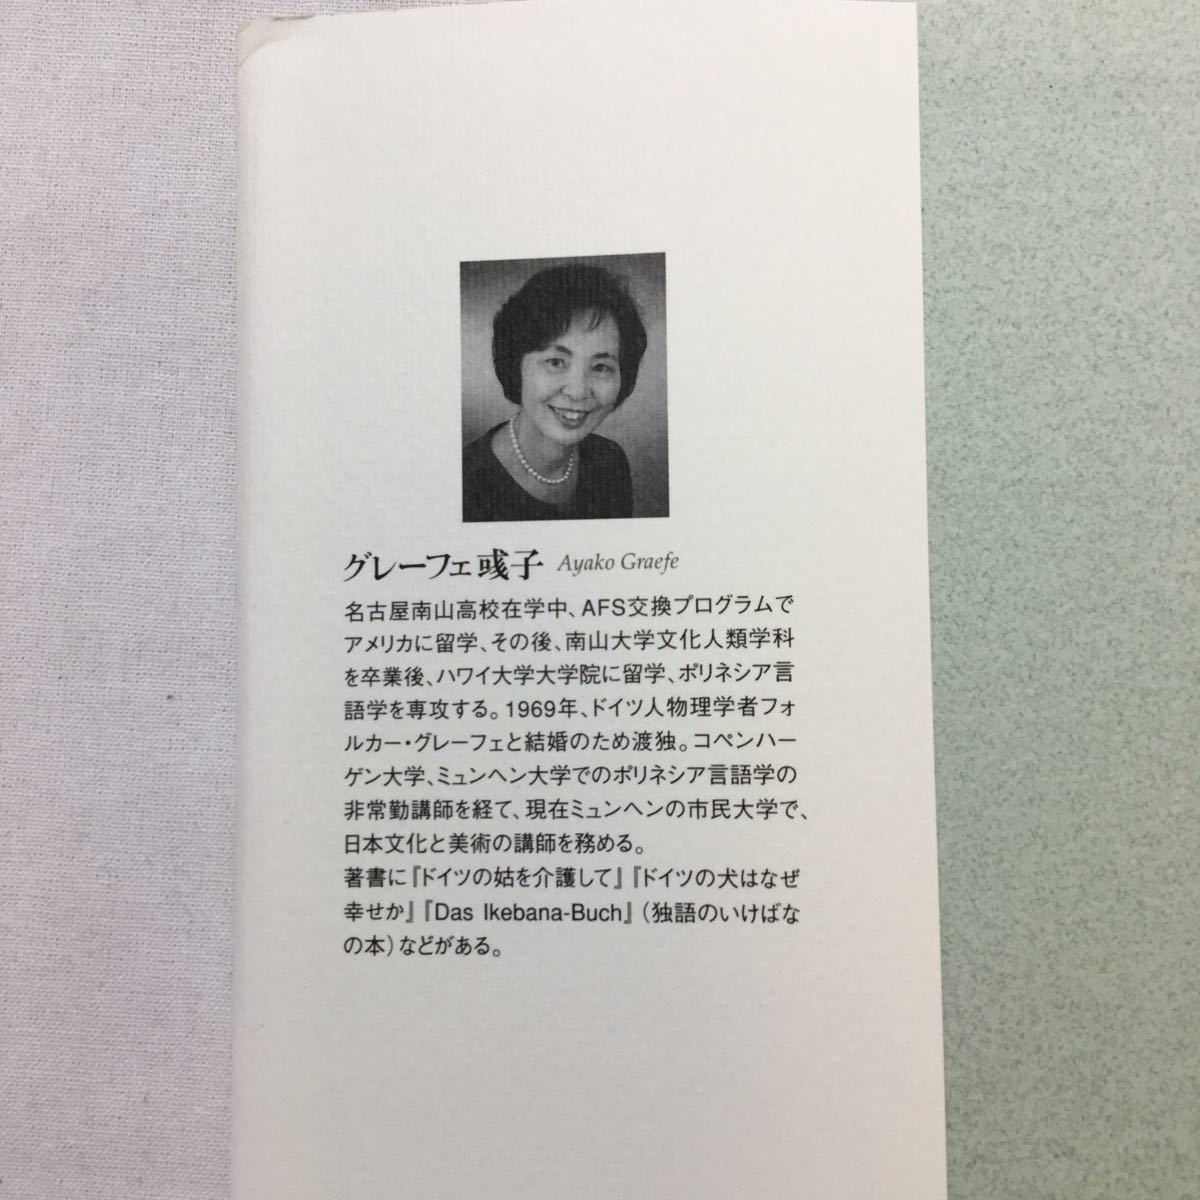 グレーフェ彧子 Ayako Graefe
名古屋南山高校在学中、AFS交換プログラムで
アメリカに留学、その後、南山大学文化人類学科
を卒業後、ハワイ大学大学院に留学、ポリネシア言
語学を専攻する。1969年、ドイツ人物理学者フォ
ルカー・グレーフェと結婚のため渡独。コペンハー
ゲン大学、ミュンヘン大学でのポリネシア言語学の
非常勤講師を経て、現在ミュンヘンの市民大学で、
日本文化と美術の講師を務める。
著書に『ドイツの姑を介護して』『ドイツの犬はなぜ
幸せか』『Das Ikebana-Buch』（独語のいけばな
の本）などがある。